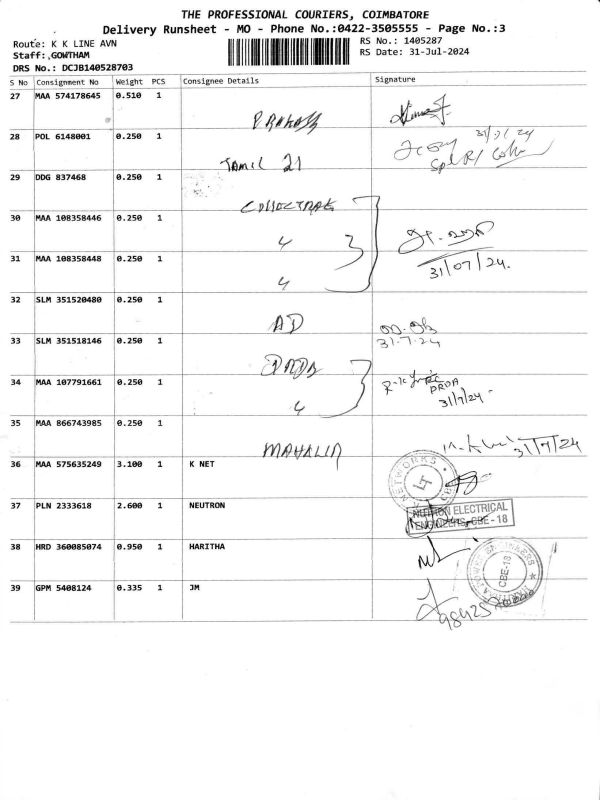 THE PROFESSIONAL COURIERS, COIMBATORE
Delivery Runsheet - MO - Phone No.:0422-3505555 - Page No.:3
Route: K K LINE AVN
RS No.: 1405287
Staff:,GOWTHAM
RS Date: 31-Jul-2024
DRS No.: DCJB140528703
S No Consignment No Weight PCS Consignee Details Signature
27 MAA 574178645 0.510 1
28 POL 6148001 0.250 1 TAMIL 21 31/7/24
29 DDG 837468 0.250 1
30 MAA 108358446 0.250 1 3
31 MAA 108358448 0.250 1 31/07/24.
32 SLM 351520480 0.250 1 AD
33 SLM 351518146 0.250 1 31-7-24
34 MAA 107791661 0.250 1 3 31/7/24
35 MAA 866743985 0.250 1 MAHALIR 31/7/24
36 MAA 575635249 3.100 1 K NET NETWORKS
37 PLN 2333618 2.600 1 NEUTRON ELECTRICAL
CBE - 18
38 HRD 360085074 0.950 1 HARITHA CBE-18
39 GPM 5408124 0.335 1 JM